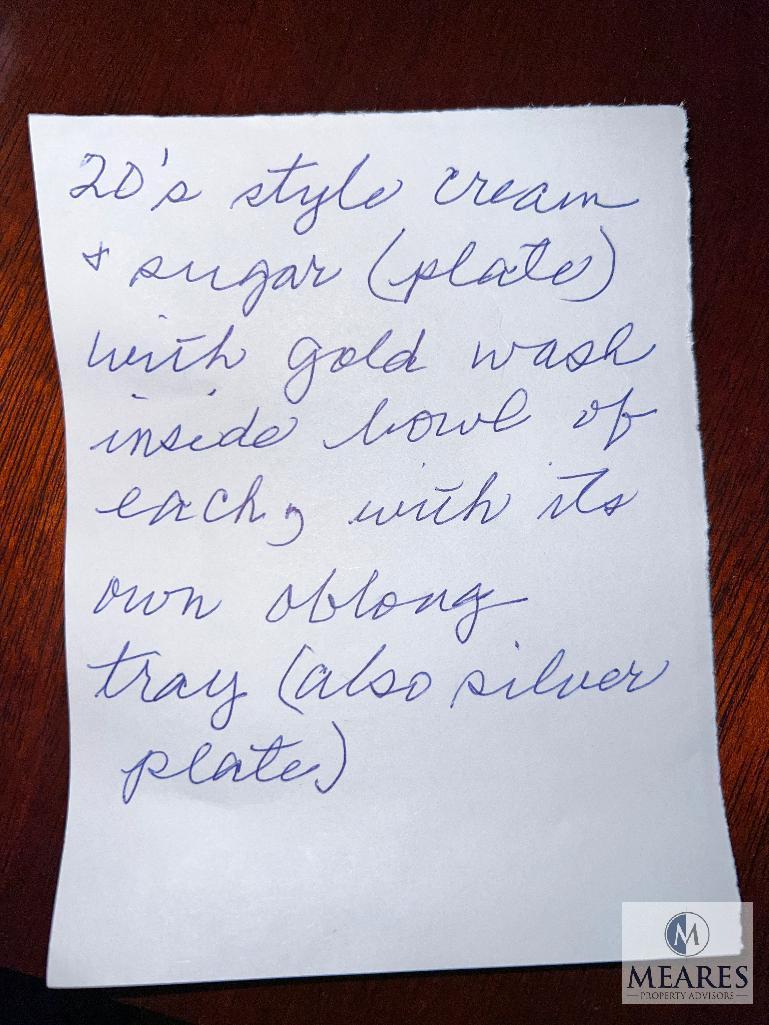 20's style cream
+ sugar (plate)
with gold wash
inside bowl of
each, with its
own oblong
tray (also silver
plate)
M
MEARES
PROPERTY ADVISORS